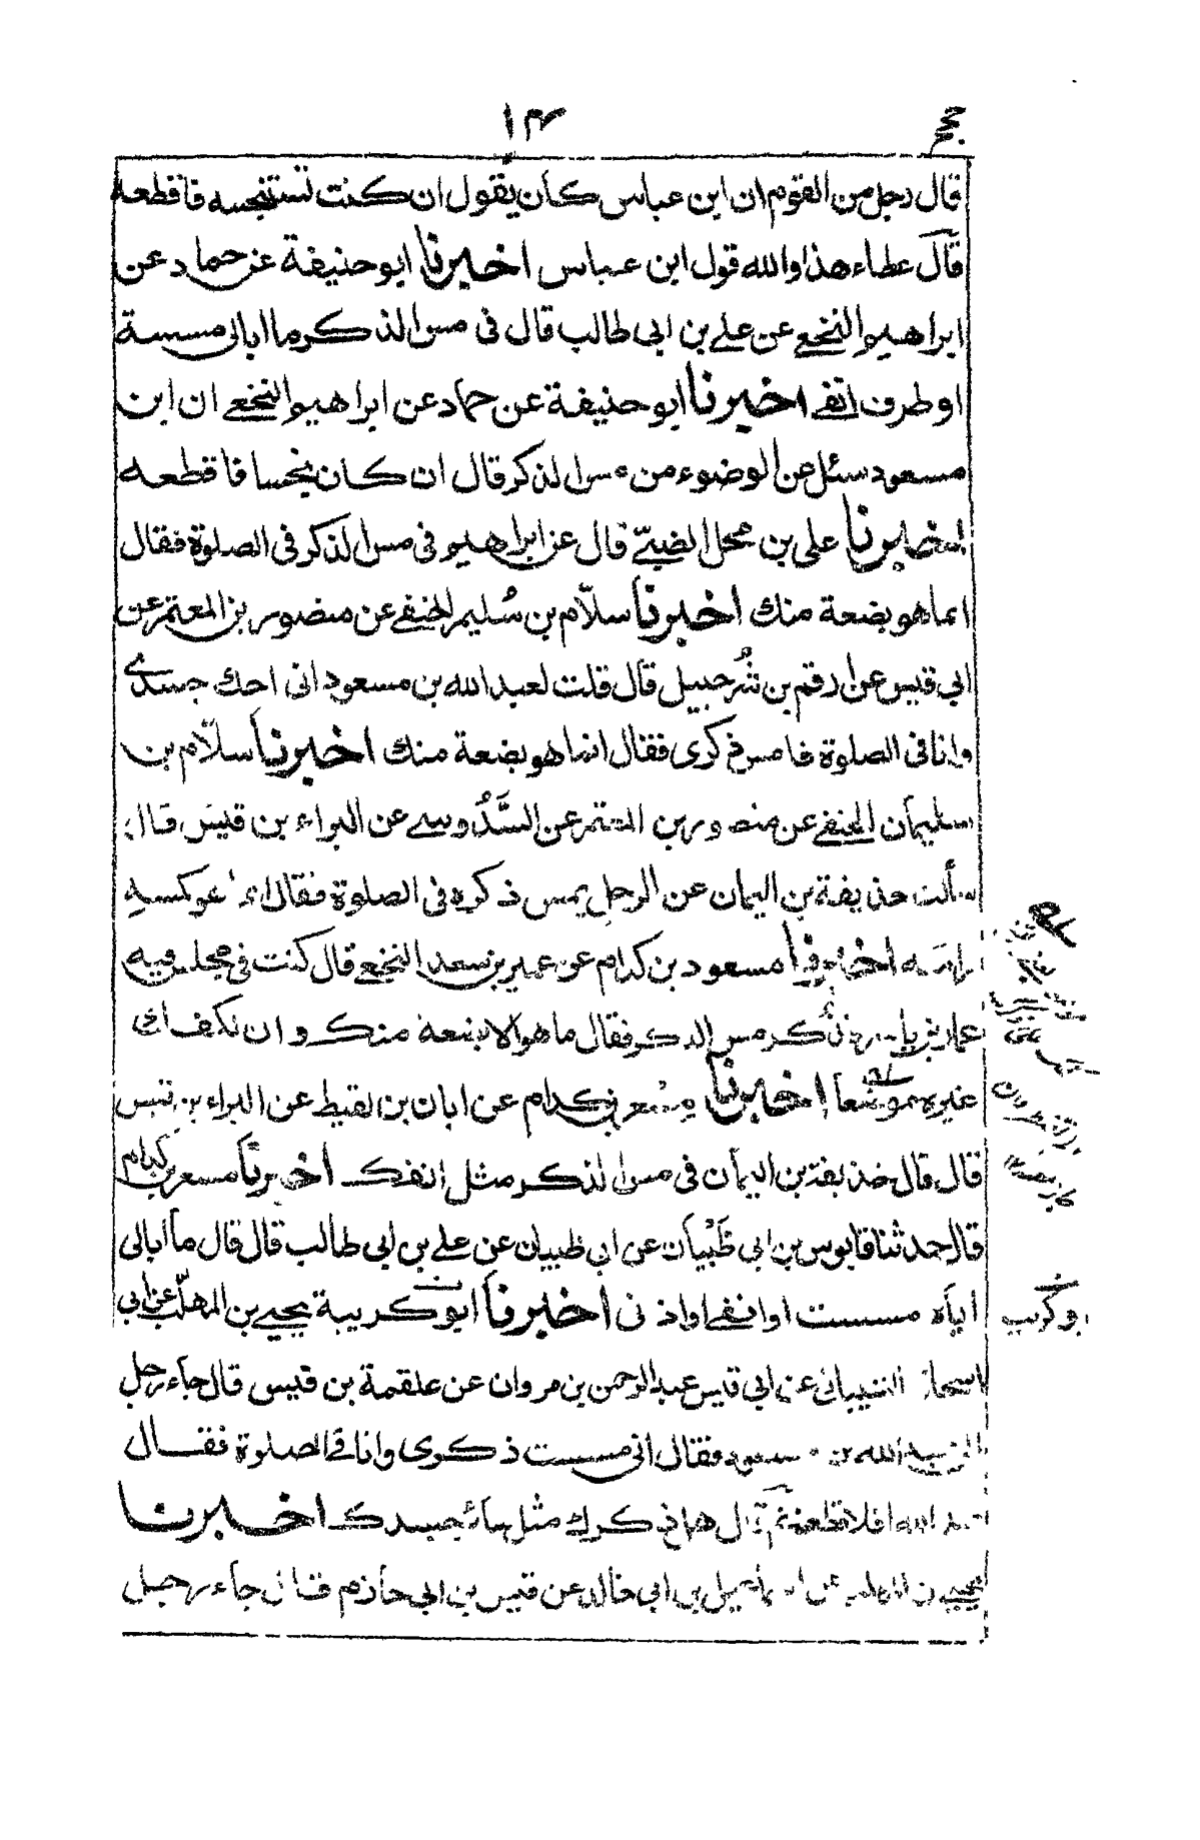 حج
١٣
قال رجل من القوم ان ابن عباس كان يقول ان كنت تستنجسه فاقطعه
قال عطاء هذا والله قول ابن عباس اخبرنا ابو حنيفة عن حماد عن
ابراهيم النخعي عن علي بن ابي طالب قال في مس الذكر ما ابالي مسسة
او طرف انفي اخبرنا ابو حنيفة عن حماد عن ابراهيم النخعي ان ابن
مسعود سئل عن الوضوء من مس الذكر قال ان كان نجسا فاقطعه
اخبرنا علي بن محل الضبيّ قال عن ابراهيم في مس الذكر في الصلوة فقال
انما هو بضعة منك اخبرنا سلّام بن سُليم الحنفي عن منصور بن المعتمر عن
ابي قيس عن ارقم بن شُرحبيل قال قلت لعبد الله بن مسعود اني احك جسدي
وانا في الصلوة فامس ذكرى فقال انما هو بضعة منك اخبرنا سلّام بن
سليمان الحنفي عن منصور بن المعتمر عن السَّدُوسي عن البراء بن قيس قال
سألت حذيفة بن اليمان عن الرجل يمس ذكره في الصلوة فقال كمسه
راسه اخبرنا مسعود بن كدام عن عمير بن سعد النخعي قال كنت في مجلس فيه
عمار بن ياسر فذكر مس الذكر فقال ما هو الا بضعة منك وان لكفك
غيره موضعا اخبرنا مِسْعر بن كدام عن ابان بن لقيط عن البراء بن قيس
قال قال حذيفة بن اليمان في مس الذكر مثل انفك اخبرنا مسعر بن كدام
قال حدثنا قابوس بن ابي ظَبْيان عن ابي ظبيان عن علي بن ابي طالب قال قال ما ابالى
اياه مسست او انفي او اذني اخبرنا ابو كريبة يحيى بن المهلّب عن ابي
اسحاق الشيباني عن ابي قيس عبد الرحمن بن مروان عن علقمة بن قيس قال جاء رجل
الى عبد الله بن مسعود فقال اني مسست ذكرى وانا في الصلوة فقال
عبد الله افلا قطعته ثم قال هل ذكرك مثل سائر جسدك اخبرنا
يحيى بن المهلب عن اسماعيل بن ابي خالد عن قيس بن ابي حازم قال جاء رجل
بو كريب